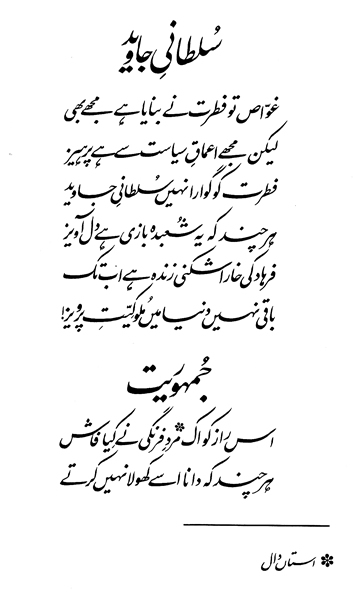 سُلطانیِ جاوید
غوّاص تو فطرت نے بنایا ہے مجھے بھی
لیکن مجھے اعماقِ سیاست سے ہے پرہیز
فطرت کو گوارا نہیں سُلطانیِ جاوید
ہرچند کہ یہ شُعبدہ بازی ہے دل آویز
فرہاد کی خارا شکنی زندہ ہے اب تک
باقی نہیں دنیا میں مُلوکیّتِ پرویز!
جُمہوریت
اس راز کو اک * مردِ فرنگی نے کِیا فاش
ہرچند کہ دانا اسے کھولا نہیں کرتے
* استاں دال